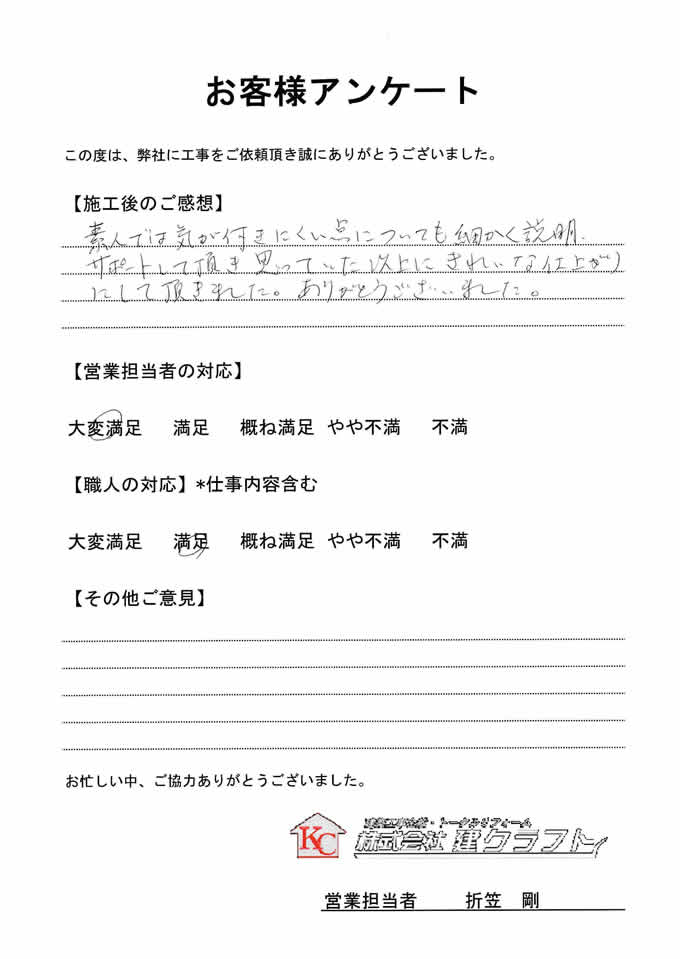 お客様アンケート
この度は、弊社に工事をご依頼頂き誠にありがとうございました。
【施工後のご感想】
素人では気が付きにくい点についても細かく説明、
サポートして頂き思っていた以上にきれいな仕上がり
にして頂きました。ありがとうございました。
【営業担当者の対応】
大変満足 満足 概ね満足 やや不満 不満
【職人の対応】*仕事内容含む
大変満足 満足 概ね満足 やや不満 不満
【その他ご意見】
お忙しい中、ご協力ありがとうございました。
KC
トータルリフォーム
株式会社 建クラフト
営業担当者 折笠 剛